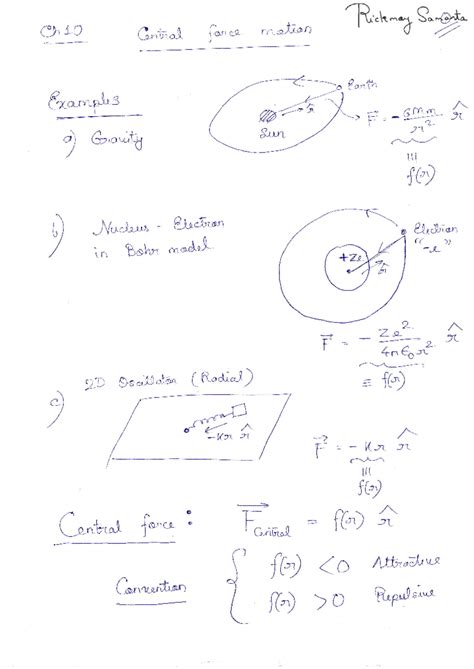 Rickmoy Samanta
Ch 10 Central force motion
Examples
a) Gravity
Earth
r̂
Sun
F⃗ = - GMm/r² r̂
≡ f(r)
b) Nucleus - Electron
in Bohr model
Electron
"-e"
+Ze
r̂
F⃗ = - Ze²/4πϵ₀r² r̂
≡ f(r)
c) 2D Oscillator (Radial)
-Kr r̂
F⃗ = -Kr r̂
≡ f(r)
Central force : F⃗ Central = f(r) r̂
Convention { f(r) < 0 Attractive
f(r) > 0 Repulsive